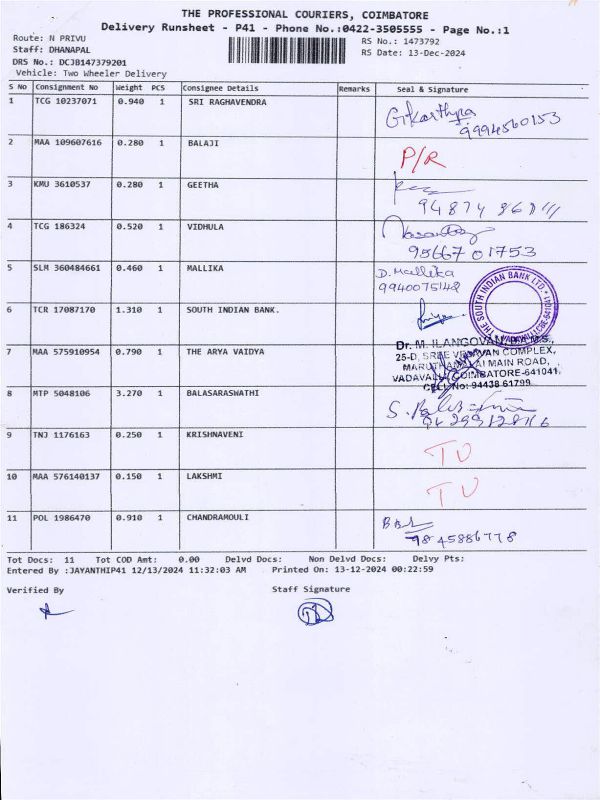 THE PROFESSIONAL COURIERS, COIMBATORE
Delivery Runsheet - P41 - Phone No.:0422-3505555 - Page No.:1
Route: N PRIVU
RS No.: 1473792
Staff: DHANAPAL
RS Date: 13-Dec-2024
DRS No.: DCJB147379201
Vehicle: Two Wheeler Delivery
S No Consignment No Weight PCS Consignee Details Remarks Seal & Signature
1 TCG 10237071 0.940 1 SRI RAGHAVENDRA
9994560153
2 MAA 109607616 0.280 1 BALAJI P/R
3 KMU 3610537 0.280 1 GEETHA
4 TCG 186324 0.520 1 VIDHULA
95667 01753
5 SLM 360484661 0.460 1 MALLIKA D. Mallika
9940075148
6 TCR 17087170 1.310 1 SOUTH INDIAN BANK.
THE SOUTH INDIAN BANK LTD.
7 MAA 575910954 0.790 1 THE ARYA VAIDYA
Dr. M. ILANGOVAN,
25-D, SREE VRINDAVAN COMPLEX,
MARUTHAMALAI MAIN ROAD,
VADAVALLI, COIMBATORE-641041.
CELL No: 94438 61799
8 MTP 5048106 3.270 1 BALASARASWATHI
9 TNJ 1176163 0.250 1 KRISHNAVENI TU
10 MAA 576140137 0.150 1 LAKSHMI TU
11 POL 1986470 0.910 1 CHANDRAMOULI
9845886778
Tot Docs: 11 Tot COD Amt: 0.00 Delvd Docs: Non Delvd Docs: Delvy Pts:
Entered By :JAYANTHIP41 12/13/2024 11:32:03 AM Printed On: 13-12-2024 00:22:59
Verified By Staff Signature